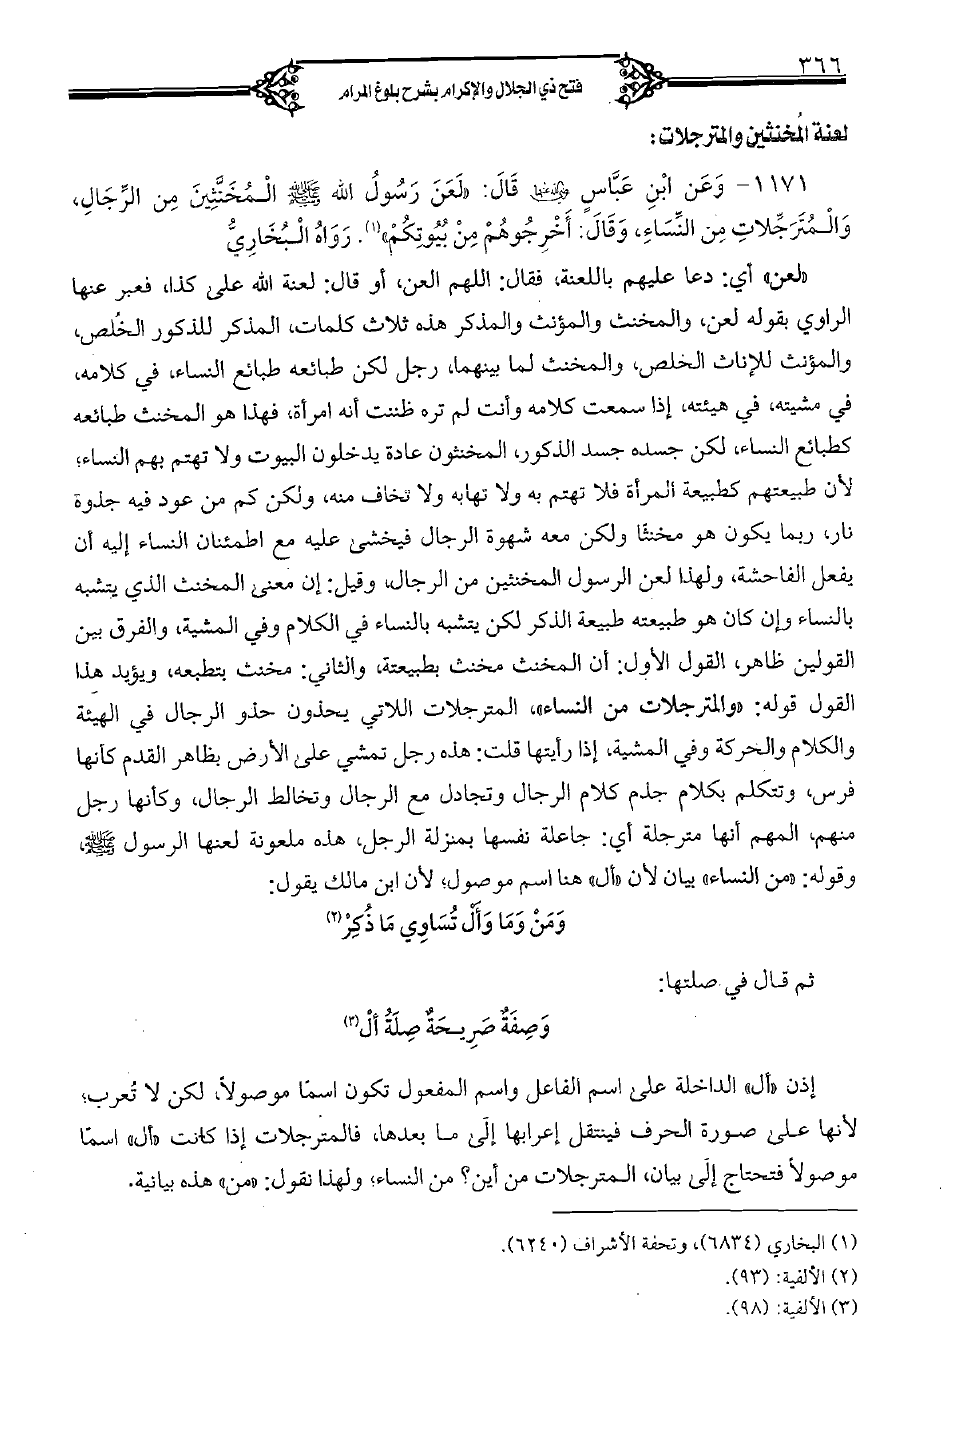 ٣٦٦
فتح ذي الجلال والإكرام بشرح بلوغ المرام
لعنة المُخنثين والمترجلات:
١١٧١- وَعَن ابْنِ عَبَّاسٍ رضي الله عنهما قَالَ: «لَعَنَ رَسُولُ الله ﷺ الْمُخَنَّثِينَ مِن الرِّجَالِ،
وَالْمُتَرَجِّلَاتِ مِن النِّسَاءِ، وَقَالَ: أَخْرِجُوهُمْ مِنْ بُيُوتِكُمْ»(١). رَوَاهُ الْبُخَارِيُّ
«لعن» أي: دعا عليهم باللعنة، فقال: اللهم العن، أو قال: لعنة الله على كذا، فعبر عنها
الراوي بقوله لعن، والمخنث والمؤنث والمذكر هذه ثلاث كلمات، المذكر للذكور الخُلص،
والمؤنث للإناث الخلص، والمخنث لما بينهما، رجل لكن طبائعه طبائع النساء، في كلامه،
في مشيته، في هيئته، إذا سمعت كلامه وأنت لم تره ظننت أنه امرأة، فهذا هو المخنث طبائعه
كطبائع النساء، لكن جسده جسد الذكور، المخنثون عادة يدخلون البيوت ولا تهتم بهم النساء؛
لأن طبيعتهم كطبيعة المرأة فلا تهتم به ولا تهابه ولا تخاف منه، ولكن كم من عود فيه جذوة
نار، ربما يكون هو مخنثًا ولكن معه شهوة الرجال فيخشى عليه مع اطمئنان النساء إليه أن
يفعل الفاحشة، ولهذا لعن الرسول المخنثين من الرجال، وقيل: إن معنى المخنث الذي يتشبه
بالنساء وإن كان هو طبيعته طبيعة الذكر لكن يتشبه بالنساء في الكلام وفي المشية، والفرق بين
القولين ظاهر، القول الأول: أن المخنث مخنث بطبيعتة، والثاني: مخنث بتطبعه، ويؤيد هذا
القول قوله: «والمترجلات من النساء»، المترجلات اللاتي يحذون حذو الرجال في الهيئة
والكلام والحركة وفي المشية، إذا رأيتها قلت: هذه رجل تمشي على الأرض بظاهر القدم كأنها
فرس، وتتكلم بكلام جذم كلام الرجال وتجادل مع الرجال وتخالط الرجال، وكأنها رجل
منهم، المهم أنها مترجلة أي: جاعلة نفسها بمنزلة الرجل، هذه ملعونة لعنها الرسول ﷺ،
وقوله: «من النساء» بيان لأن «أل» هنا اسم موصول؛ لأن ابن مالك يقول:
وَمَنْ وَمَا وَأَلْ تُسَاوِي مَا ذُكِرْ(٢)
ثم قال في صلتها:
وَصِفَةٌ صَرِيحَةٌ صِلَةُ أَلْ(٣)
إذن «أل» الداخلة على اسم الفاعل واسم المفعول تكون اسمًا موصولاً، لكن لا تُعرب؛
لأنها على صورة الحرف فينتقل إعرابها إلَى ما بعدها، فالمترجلات إذا كانت «أل» اسمًا
موصولاً فتحتاج إلَى بيان، المترجلات من أين؟ من النساء؛ ولهذا نقول: «من» هذه بيانية.
(١) البخاري (٦٨٣٤)، وتحفة الأشراف (٦٢٤٠).
(٢) الألفية: (٩٣).
(٣) الألفية: (٩٨).